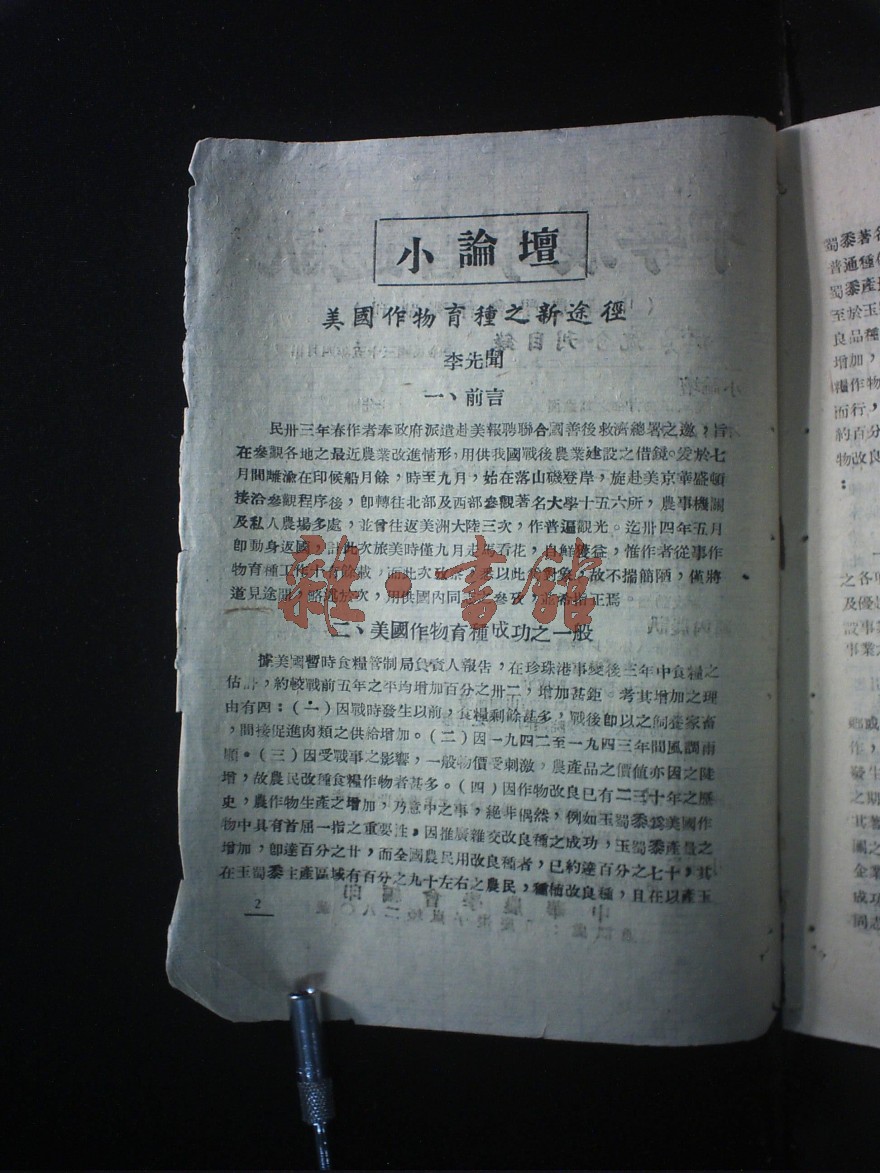 小論壇
美國作物育種之新途徑
李先聞
一、前言
民卅三年春作者奉政府派遣赴美報聘聯合國善後救濟總署之邀，旨
在參觀各地之最近農業改進情形，用供我國戰後農業建設之借鏡。爰於七
月間離渝在印候船月餘，時至九月，始在落山磯登岸，旋赴美京華盛頓
接洽參觀程序後，卽轉往北部及西部參觀著名大學十五六所，農事機關
及私人農場多處，並曾往返美洲大陸三次，作普遍觀光。迄卅四年五月
卽動身返國，計此次旅美時僅九月走馬看花，自鮮獲益，惟作者從事作
物育種工作十有餘載，而此次攷察，悉以此為對象，故不揣簡陋，僅將
道見途聞，略述於次，用供國內同志參攷，並希指正焉。
二、美國作物育種成功之一般
據美國暫時食糧管制局負責人報告，在珍珠港事變後三年中食糧之
估計，約較戰前五年之平均增加百分之卅二，增加甚鉅。考其增加之理
由有四：（一）因戰時發生以前，食糧剩餘甚多，戰後卽以之飼養家畜
，間接促進肉類之供給增加。（二）因一九四二至一九四三年間風調雨
順。（三）因受戰事之影響，一般物價受刺激，農產品之價值亦因之陡
增，故農民改種食糧作物者甚多。（四）因作物改良已有二三十年之歷
史，農作物生產之增加，乃意中之事，絕非偶然，例如玉蜀黍為美國作
物中具有首屈一指之重要性，因推廣雜交改良種之成功，玉蜀黍產量之
增加，卽達百分之廿，而全國農民用改良種者，已約達百分之七十，其
在玉蜀黍主產區域有百分之九十左右之農民，種植改良種，且在以產玉
2
雜·書館
蜀黍著名
普通種
蜀黍產
至於玉
良品種
增加，
糧作物
而行，
約百分
物改良
：
一
之各項
及優
設事業
事業
鄉或
作，
發生
之期
其著
國之
企業
成功
同志